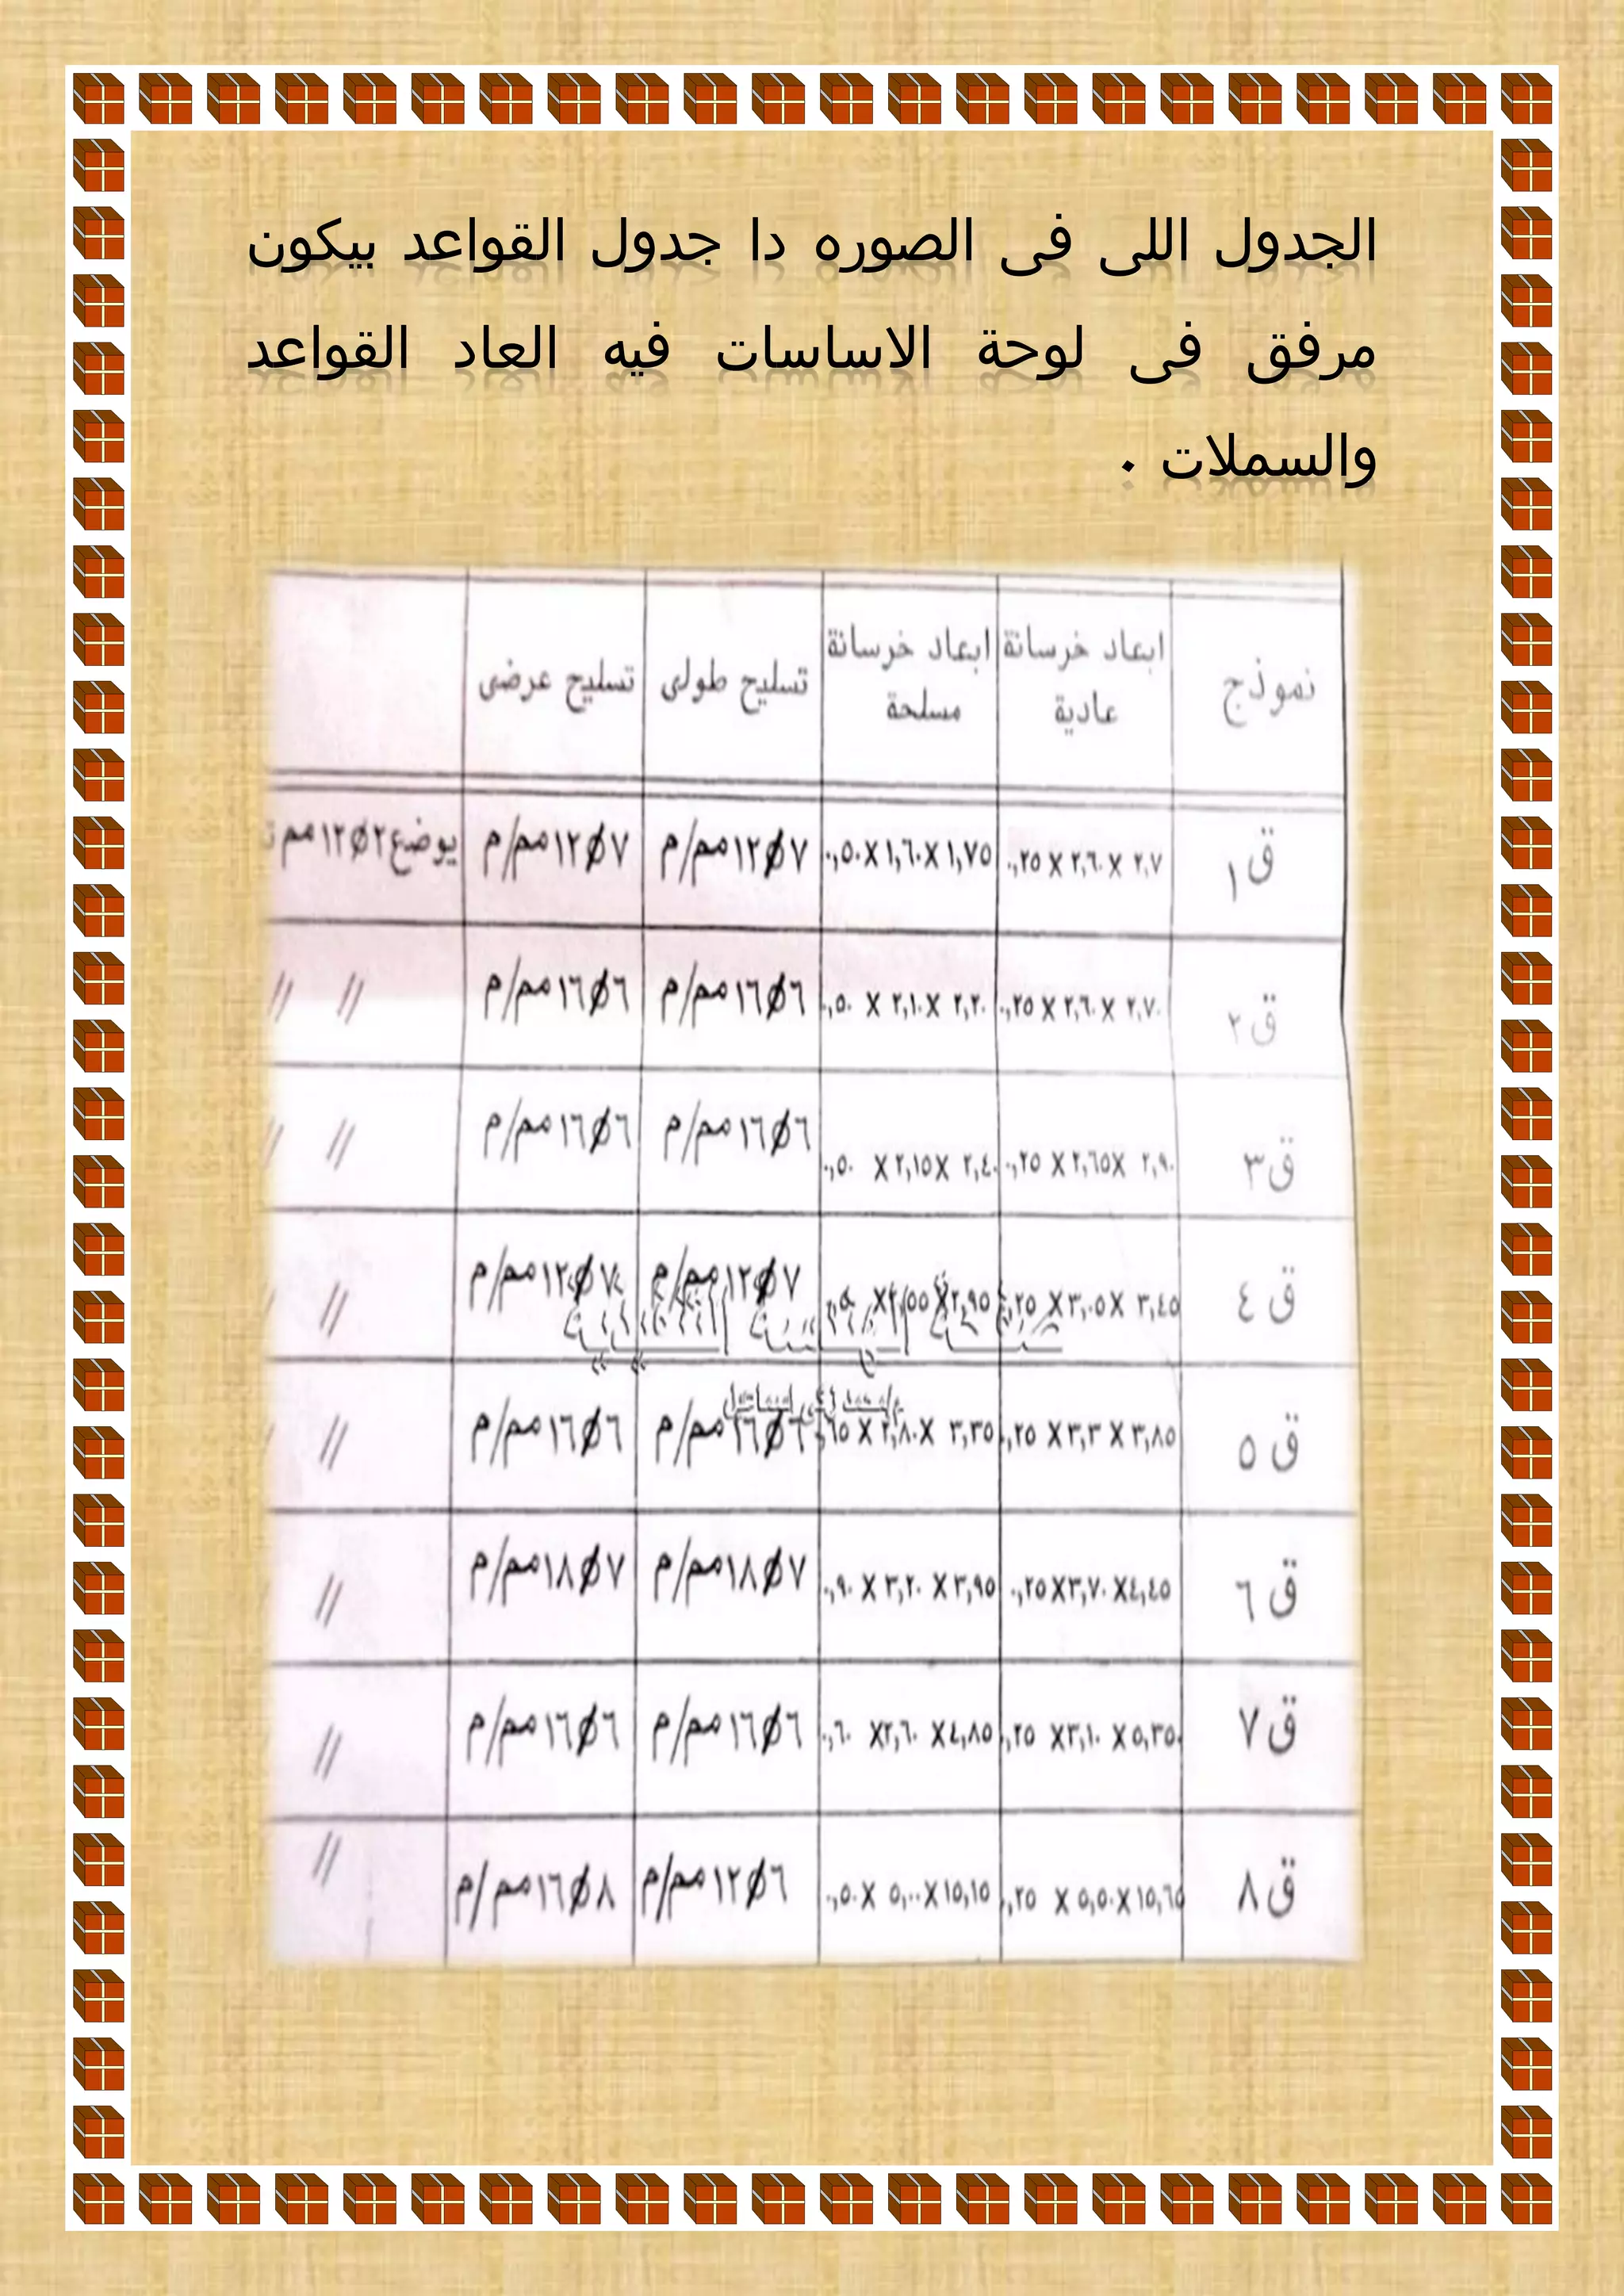 الجدول اللى فى الصوره دا جدول القواعد بيكون
مرفق فى لوحة الاساسات فيه العاد القواعد
والسملات .
نموذج ابعاد خرسانة عادية ابعاد خرسانة مسلحة تسليح طولى تسليح عرضى
ق١ ٢,٧ X ٢,٦٠ X ٠,٢٥ ١,٧٥ X ١,٦٠ X ٠,٥٠ ٧Ø١٢مم/م ٧Ø١٢مم/م يوضع ٢Ø١٢مم
ق٢ ٢,٧٠ X ٢,٦٠ X ٠,٢٥ ٢,٢٠ X ٢,١٠ X ٠,٥٠ ٦Ø١٦مم/م ٦Ø١٦مم/م // //
ق٣ ٢,٩٠ X ٢,٦٥ X ٠,٢٥ ٢,٤٠ X ٢,١٥ X ٠,٥٠ ٦Ø١٦مم/م ٦Ø١٦مم/م // //
ق٤ ٣,٤٥ X ٣,٠٥ X ٠,٢٥ ٢,٩٥ X ٢,٥٥ X ٧Ø١٢مم/م ٧Ø١٢مم/م //
ق٥ ٣,٨٥ X ٣,٣ X ٠,٢٥ ٣,٣٥ X ٢,٨٠ X ٠,٦٥ ٦Ø١٦مم/م ٦Ø١٦مم/م //
ق٦ ٤,٤٥ X ٣,٧٠ X ٠,٢٥ ٣,٩٥ X ٣,٢٠ X ٠,٩٠ ٧Ø١٨مم/م ٧Ø١٨مم/م //
ق٧ ٥,٣٥ X ٣,١٠ X ٠,٢٥ ٤,٨٥ X ٢,٦٠ X ٠,٦٠ ٦Ø١٦مم/م ٦Ø١٦مم/م //
ق٨ ١٥,٦٥ X ٥,٥٠ X ٠,٢٥ ١٥,١٥ X ٥,٠٠ X ٠,٥٠ ٦Ø١٢مم/م ٨Ø١٦مم/م //